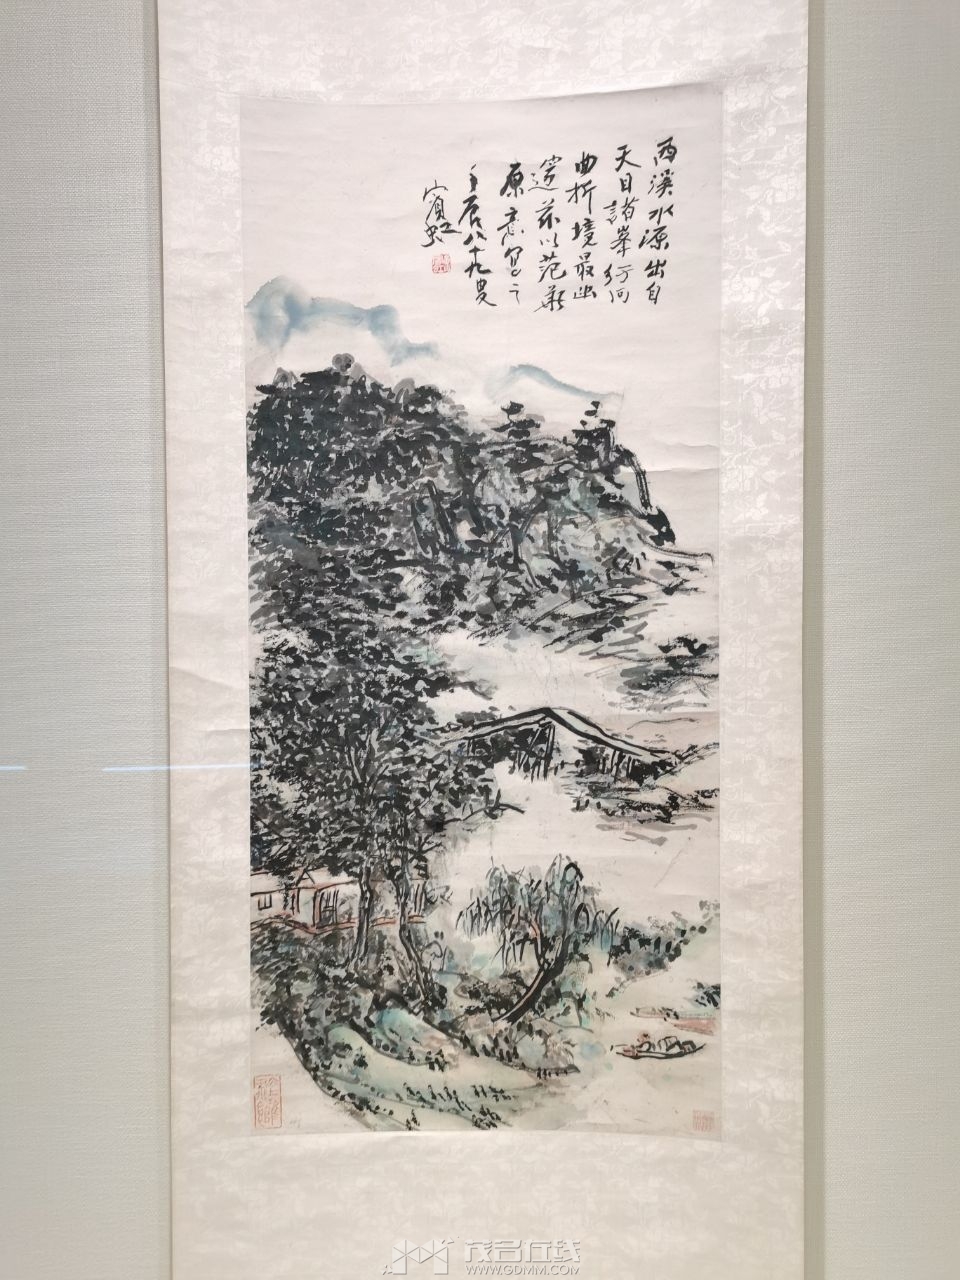 西溪水源出自
天目諸峯行河
曲折境最幽
邃茲以范華
原意寫之
壬辰八十九叟
賓虹
茂名在线
WWW.GDMM.COM